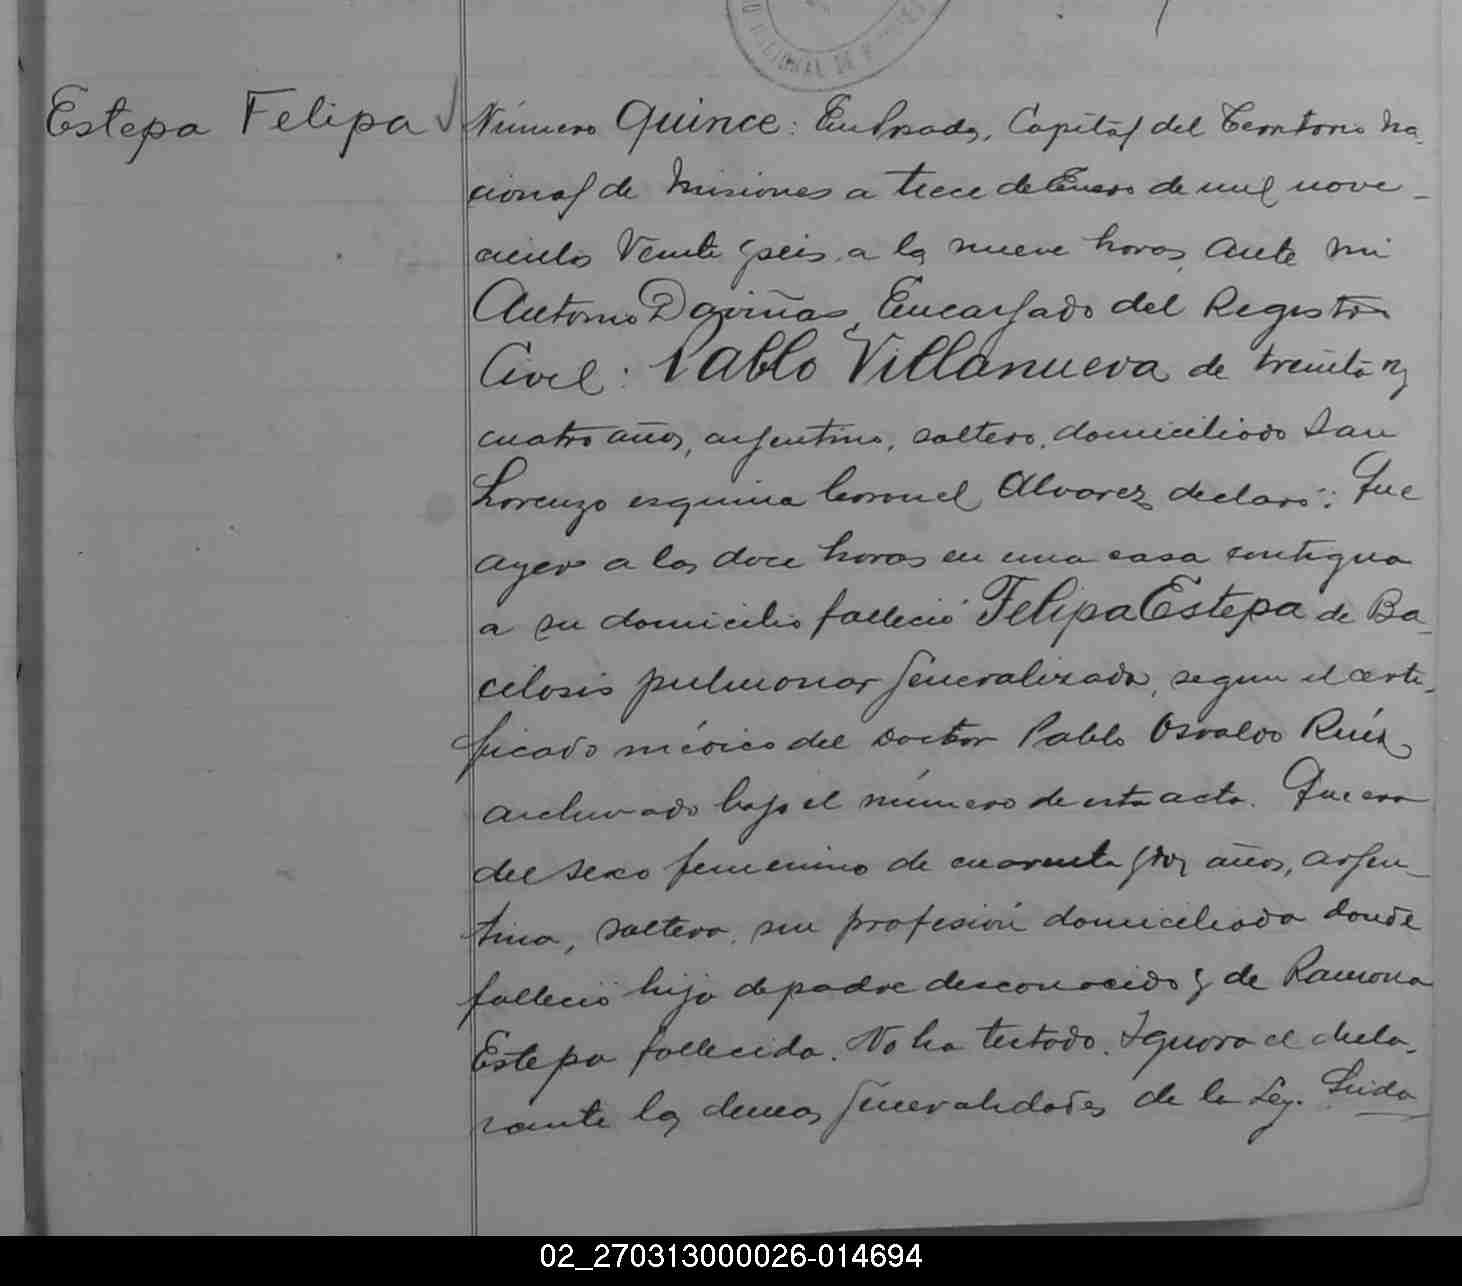 Estepa Felipa
Número Quince: En Posadas, Capital del Territorio Na-
cional de Misiones a trece de Enero de mil nove-
cientos Veinte y seis, a las nueve horas, ante mi
Antonio Daviñas, Encargado del Registro
Civil: Pablo Villanueva de treinta y
cuatro años, argentino, soltero, domiciliado San
Lorenzo esquina Coronel Alvarez declaró: Que
ayer a las doce horas en una casa contigua
a su domicilio falleció Felipa Estepa de Ba-
cilosis pulmonar generalizada, segun el certi-
ficado médico del Doctor Pablo Osvaldo Ruíz
archivado bajo el número de esta acta. Que era
del sexo femenino de cuarenta y dos años, argen-
tina, soltera, sin profesión domiciliada donde
falleció hija de padre desconocido y de Ramona
Estepa fallecida. No ha testado. Ignora el decla-
rante las demas generalidades de la Ley. Leida
02_270313000026-014694